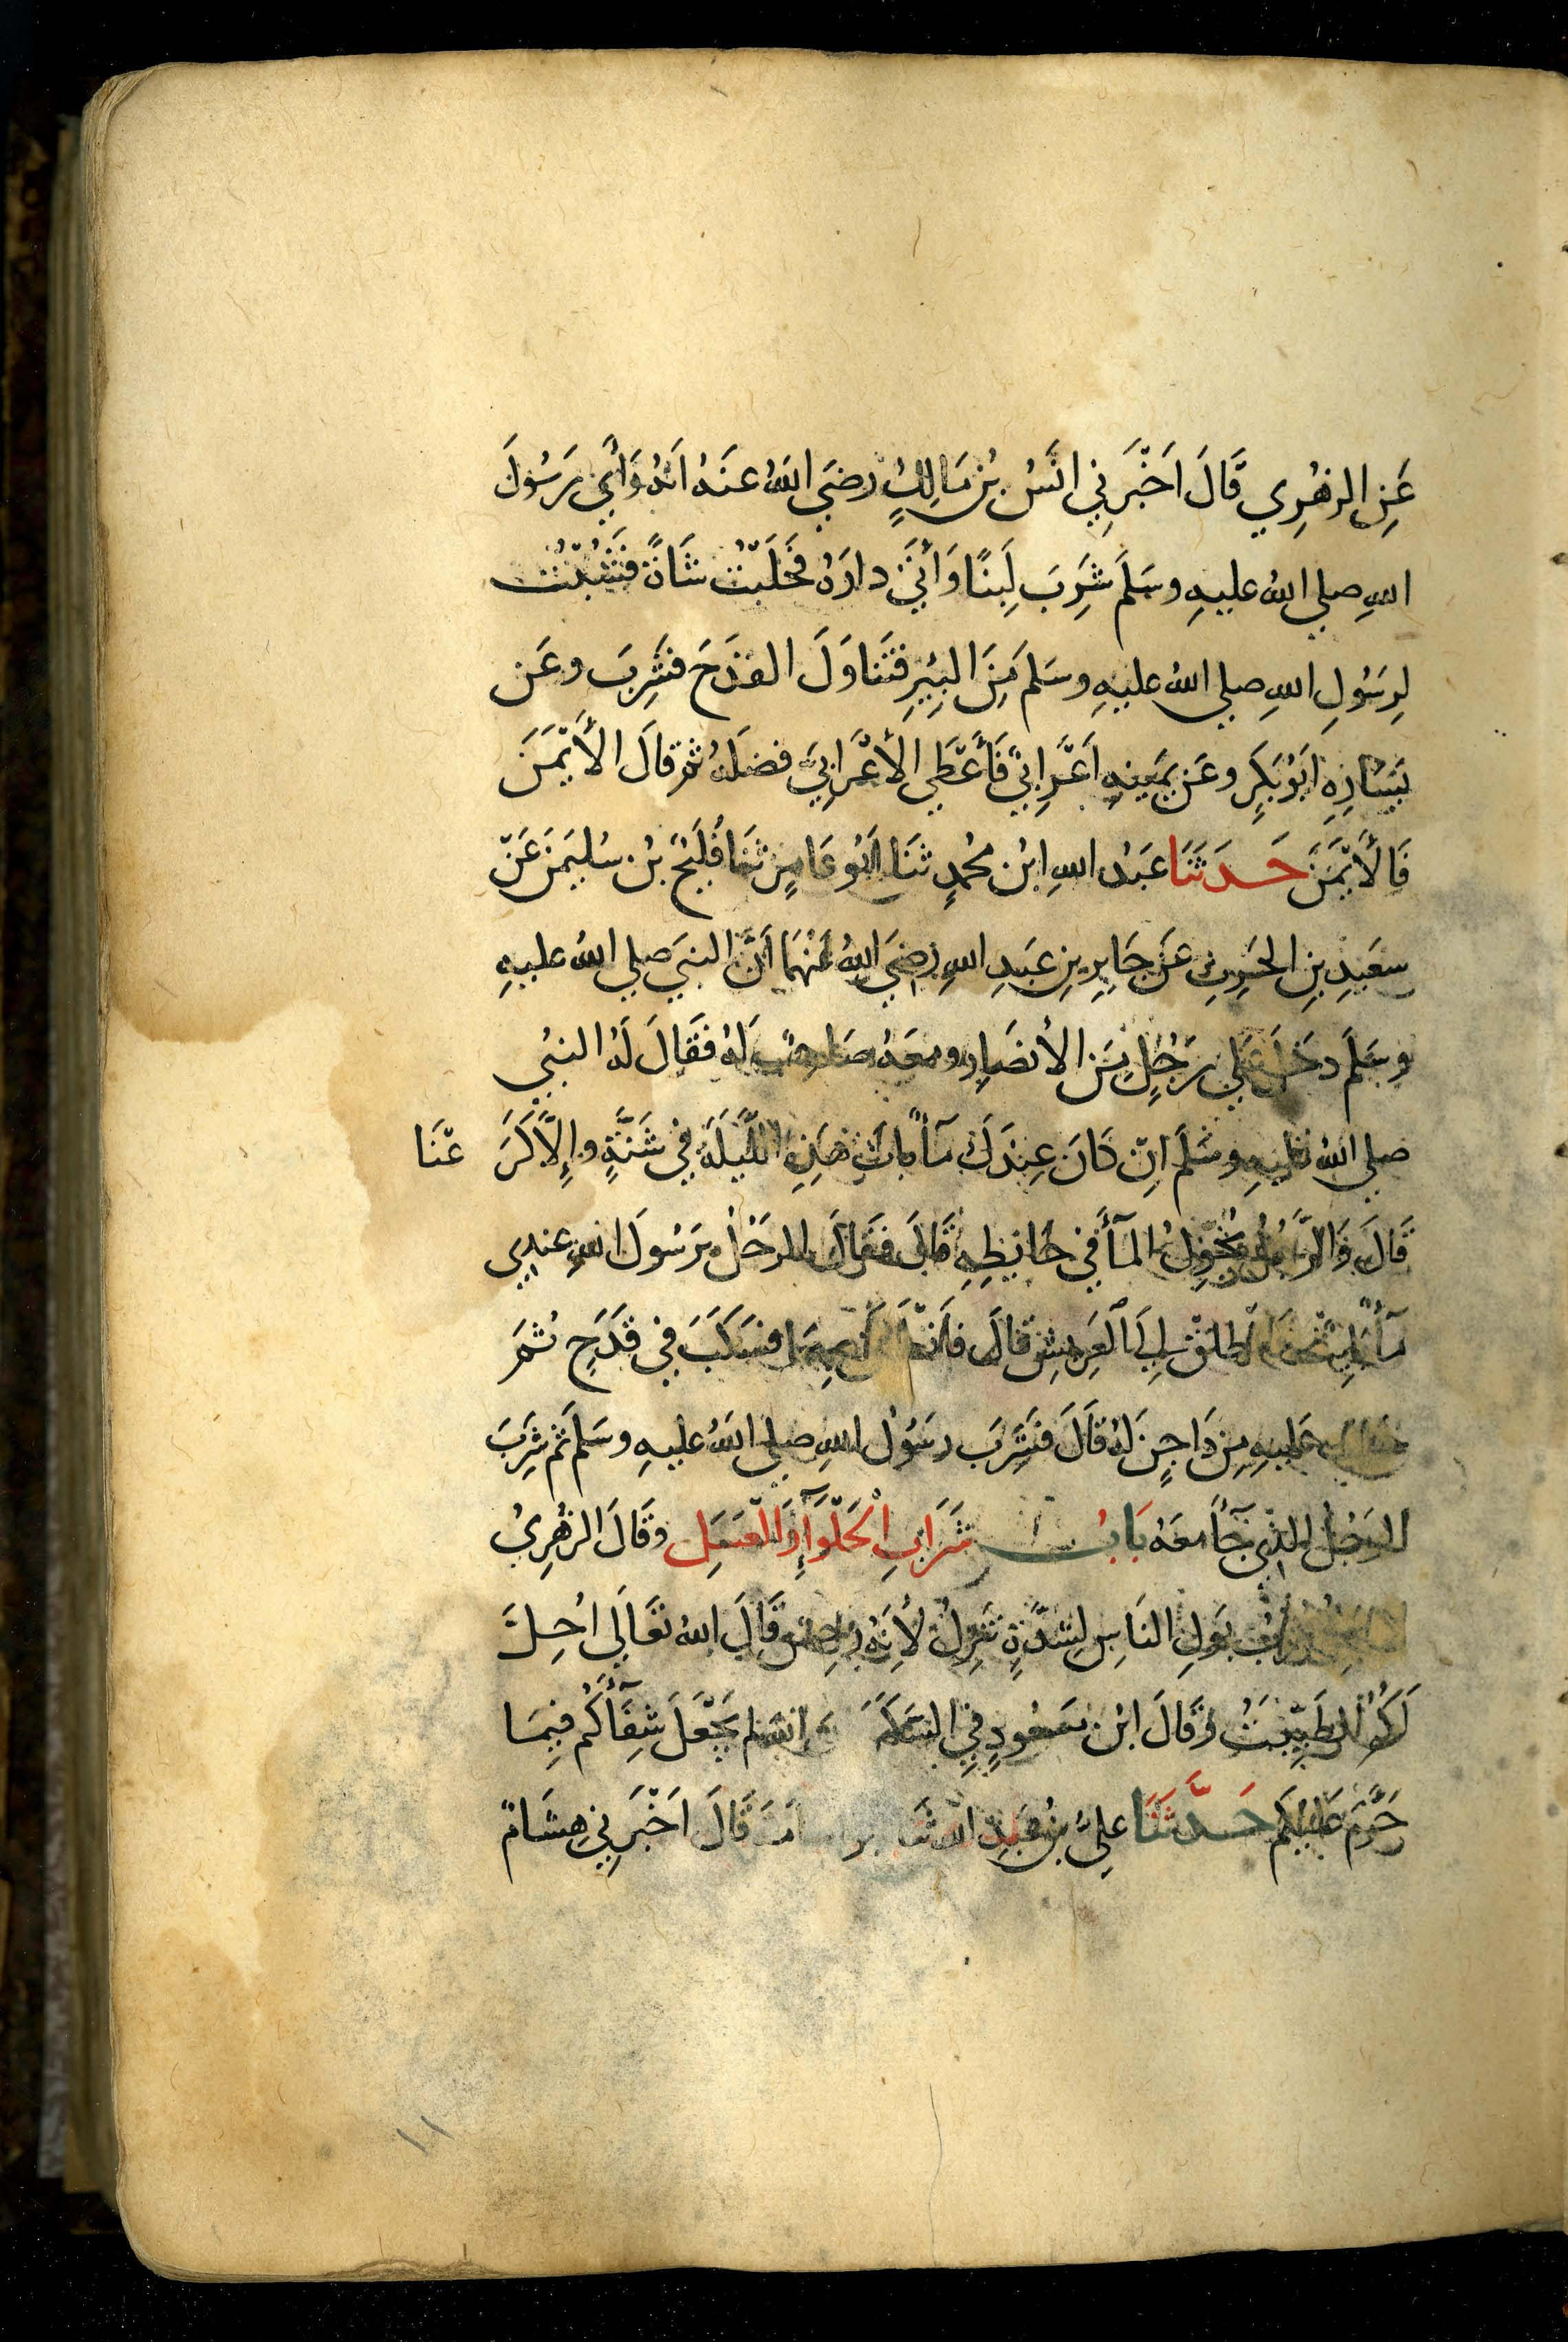 عَنِ الزهْرِي قَالَ اَخْبَرَنِي انَسُ بْن مَالِكٍ رضَي اللهُ عنَهُ اَنهُ رَأَي رَسُولَ
اللهِ صلي اللهُ عليهِ وسَلَّمَ شَرِبَ لَبنًا وَأَتَي دارَهُ فَحَلَبْتُ شَاةً فَشُبْتُ
لِرسَوُلِ اللهِ صلي اللهُ عليهِ وسَلمَ مِنَ البِيْرِ فتَناوَلَ القدَحَ فشَرِبَ وعَن
يَسَارِهِ اَبوُ بَكِر وعَن يمَينهِ اَعَرابيٌ فَأَعْطَي الأَعْرَابيَ فضَلهُ ثم قالَ الأَيْمَنَ
فَالأَيْمَنَ حَدثَنَا عبَدُ اللهِ ابنُ محُمدٍ ثنَا اَبوُ عَامِرٍ ثنَا فُلَيْحُ بْن سُليَمنَ عَنْ
سعَيدِ بنِ الحَرِثِ عَن جَابِرِ بنِ عبَدِ اللهِ رضِيَ اللهُ عَنْهُمَا اَنَّ النبيَ صلي اللهُ عليهِ
وسَلَّمَ دخَلَ عَلَي رَجُلٍ مِنَ الأنصَارِ ومعَهُ صَاحِبٌ لَهُ فقَالَ لَهُ النبيُ
صلي اللهُ عليهِ وسَلَّمَ اِنْ كَانَ عِندَكَ مَآءٌ بَاتَ هَذِهِ اللَّيلَةَ فِي شَنَّةٍ وإِلاَّ كَرَ عْنَا
قَالَ وَالرَّجُلُ يُحَوِّلُ المآءَ فِي حَائِطِهِ قَالَ فقَالَ الرجَُلُ يرَسُولَ اللهِ عندِي
مآءٌ بَائِتٌ فانطلقْ اِلَي العَرِيشِ قالَ فانْطَلَقَ بِهِمَا فسَكَبَ فِي قدَحٍ ثمَ
حَلَبَ عَليهِ مِن دَاجِنٍ لهُ قَالَ فشَرِبَ رسَوُلُ اللهِ صلي اللهُ عليهِ وسَلمَ ثم شَرِبَ
الرجُلُ الذِي جَآءَ معَهُ بَابُ شَرَابِ الْحَلْوَآءِ وَالْعسَلِ وقَالَ الزهْرِيُ
لاَ يَحِلُّ شُرْبُ بَولِ النَاسِ لِشدَّةٍ تَنْزِلُ لأنهُ رِجْسٌ قَالَ اللهُ تعَالَي اُحِلَّ
لَكُمُ الطَيِّبَتُ وقَالَ ابْن مسَعُودٍ فِي السَّكَرِ اِن اللهَ لَم يَجْعَلْ شِفَآءَكُمْ فِيمَا
حَرَّمَ عَليكُم حَدَّثَنَا عَلِيُّ بْنُ عَبدِ اللهِ ثنَا ابو اسامَةَ قَالَ اَخْبَرَنِي هِشَامٌ
١١